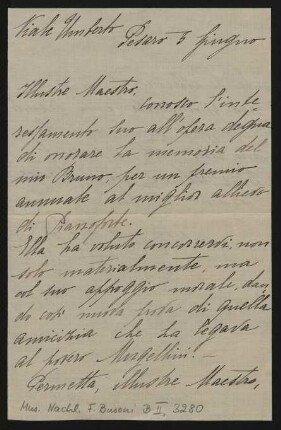 Viale Umberto
Pesaro 5 giugno
Illustre Maestro,
conosco l'inte
ressamento Suo all'opera degna
di onorare la memoria del
mio Bruno, per un premio
annuale al miglior allievo
di Pianoforte.
Ella ha voluto concorrervi, non
solo materialmente, ma
col suo appoggio morale, dan
do così nuova prova di quella
amicizia che ha legava
al povero Mugellini! —
Permetta, illustre Maestro,
Mus. Nachl. F. Busoni B II, 3280